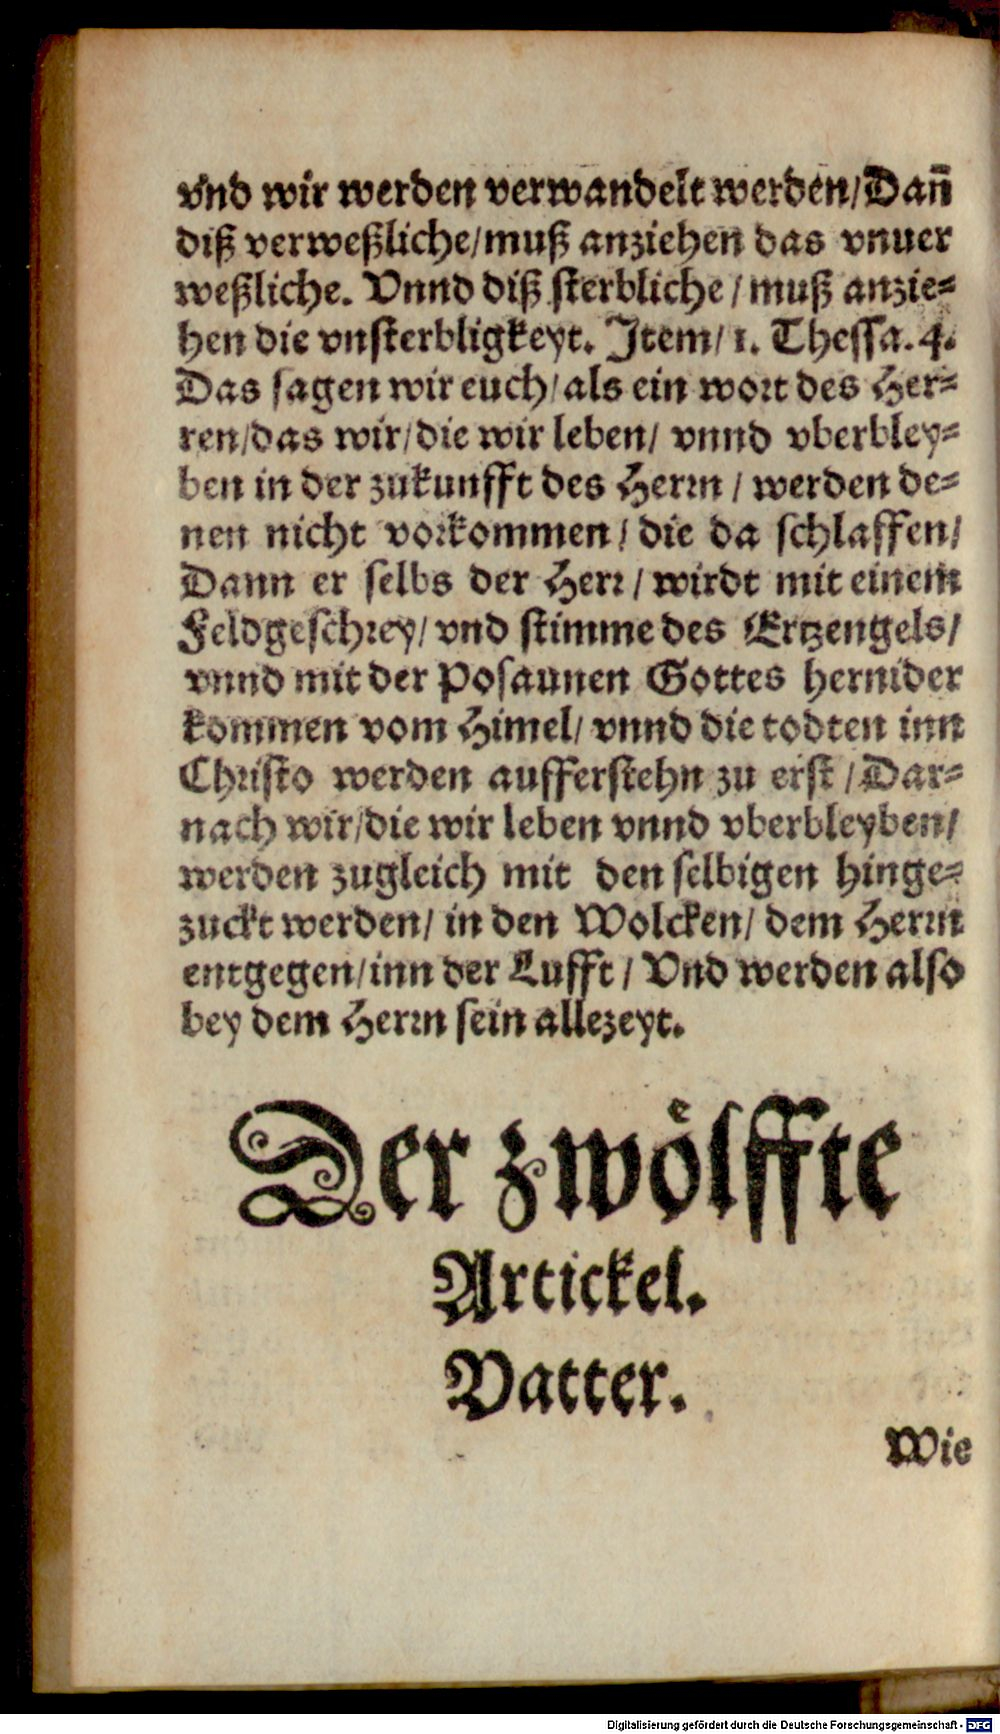 vnd wir werden verwandelt werden/Dañ
diß verweßliche/muß anziehen das vnuer
weßliche. Vnnd diß sterbliche / muß anzie=
hen die vnsterbligkeyt. Item/ 1. Thessa. 4.
Das sagen wir euch/ als ein wort des Her=
ren/das wir/die wir leben/ vnnd vberbley=
ben in der zukunfft des Herrn / werden de=
nen nicht vorkommen / die da schlaffen/
Dann er selbs der Herr / wirdt mit einem
Feldgeschrey/ vnd stimme des Ertzengels/
vnnd mit der Posaunen Gottes hernider
kommen vom Himel/ vnnd die todten inn
Christo werden aufferstehn zu erst / Dar=
nach wir/die wir leben vnnd vberbleyben/
werden zugleich mit den selbigen hinge=
zuckt werden/ in den Wolcken/ dem Herrn
entgegen/inn der Lufft / Vnd werden also
bey dem Herrn sein allezeyt.
Der zwoͤlffte
Artickel.
Vatter.
Wie
Digitalisierung gefördert durch die Deutsche Forschungsgemeinschaft - DFG